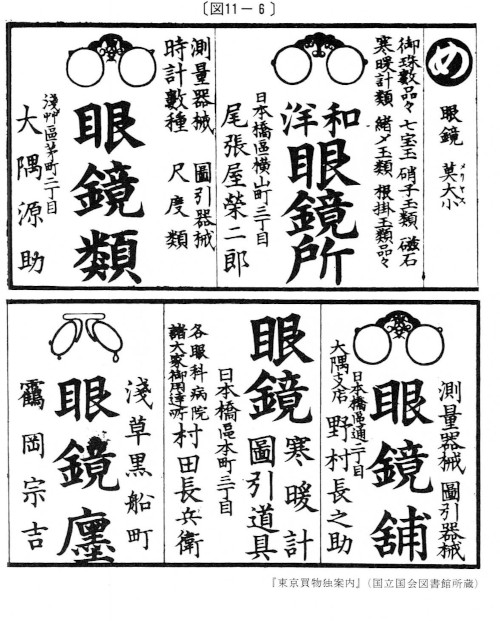 〔図11－6〕
め
眼鏡 莫大小
メリヤス
御珠數品々 七宝玉 硝子玉類 磁石
寒暖計類 緒〆玉類 根掛玉類品々
和洋眼鏡所
日本橋區横山町三丁目
尾張屋榮二郎
測量器械 圖引器械
時計數種 尺度類
眼鏡類
淺艸區茅町二丁目
大隅源助
測量器械 圖引器械
眼鏡舖
日本橋區通二丁目
大隅支店 野村長之助
眼鏡
寒暖計
圖引道具
日本橋區本町三丁目
各眼科病院
諸大家御用達所
村田長兵衛
淺草黒船町
眼鏡廛
鶴岡宗吉
『東京買物独案内』（国立国会図書館所蔵）